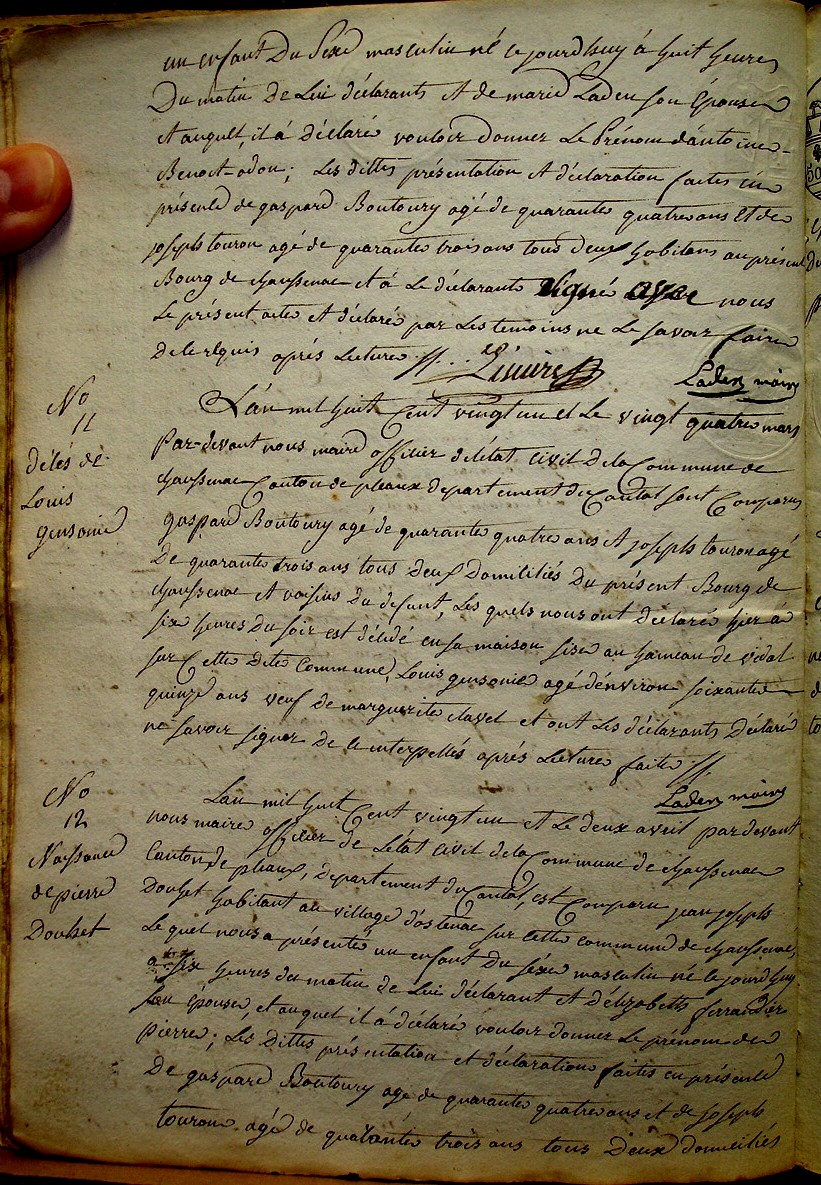 un enfant Du Séxe masculin né ce jourd'huy á huit heures
Du matin de Lui déclarant et de marie Laden son épouse
et auquel, il á déclaré vouloir donner Le Prénom d'antoine-
Benoit-odon; Les dittes présentation et déclaration faites en
présence de gaspard Boutoury agé de quarante quatre ans et de
joseph touron agé de quarante trois ans tous deux habitans au présent
Bourg de chaussenac et á Le déclarant signé avec nous
Le présent acte et déclaré par Les temoins ne Le savoir faire
de le requis aprés Lecture //..
Laden maire
No
11
déces de
Louis
gensonie
L'an mil huit Cent vingt un et Le vingt quatre mars
Par-devant nous maire officier de l'état Civil De la Commune de
chaussenac Canton de pleaux departement du Cantal sont Comparus
gaspard Boutoury agé de quarante quatre ans et joseph touron agé
De quarante trois ans tous deux Domiciliés Du présent Bourg de
chaussenac et voisins Du defunt, Les quels nous ont déclaré hier á
six heures Du soir est décédé en sa maison sise au hameau de vidal
sur Cette Dite Commune, Louis gensonie agé d'environ soixante
quinze ans veuf de marguerite clavel et ont Les déclarants Déclaré
ne savoir signer De le interpellés aprés Lecture faite //.
Laden maire
No
12
Naissance
de pierre
Doulset
L'an mil huit Cent vingt un et Le deux avril par devant
nous maire officier de L'état Civil de la Commune de chaussenac
Canton de pleaux, departement du Cantal, est Comparu jean joseph
Doulset habitant au village d'ostenac sur cette commune de chaussenac,
Le quel nous a présenté un enfant Du séxe masculin né ce jourd'huy
a six heures du matin de Lui déclarant et d'élizabeth ferrandier
son épouse, et auquel il á déclaré vouloir donner Le prénom de
pierre; Les Dittes présentation et déclaration faites en présence
De gaspard Boutoury agé de quarante quatre ans et de joseph
touron agé de quarante trois ans tous Deux domiciliés